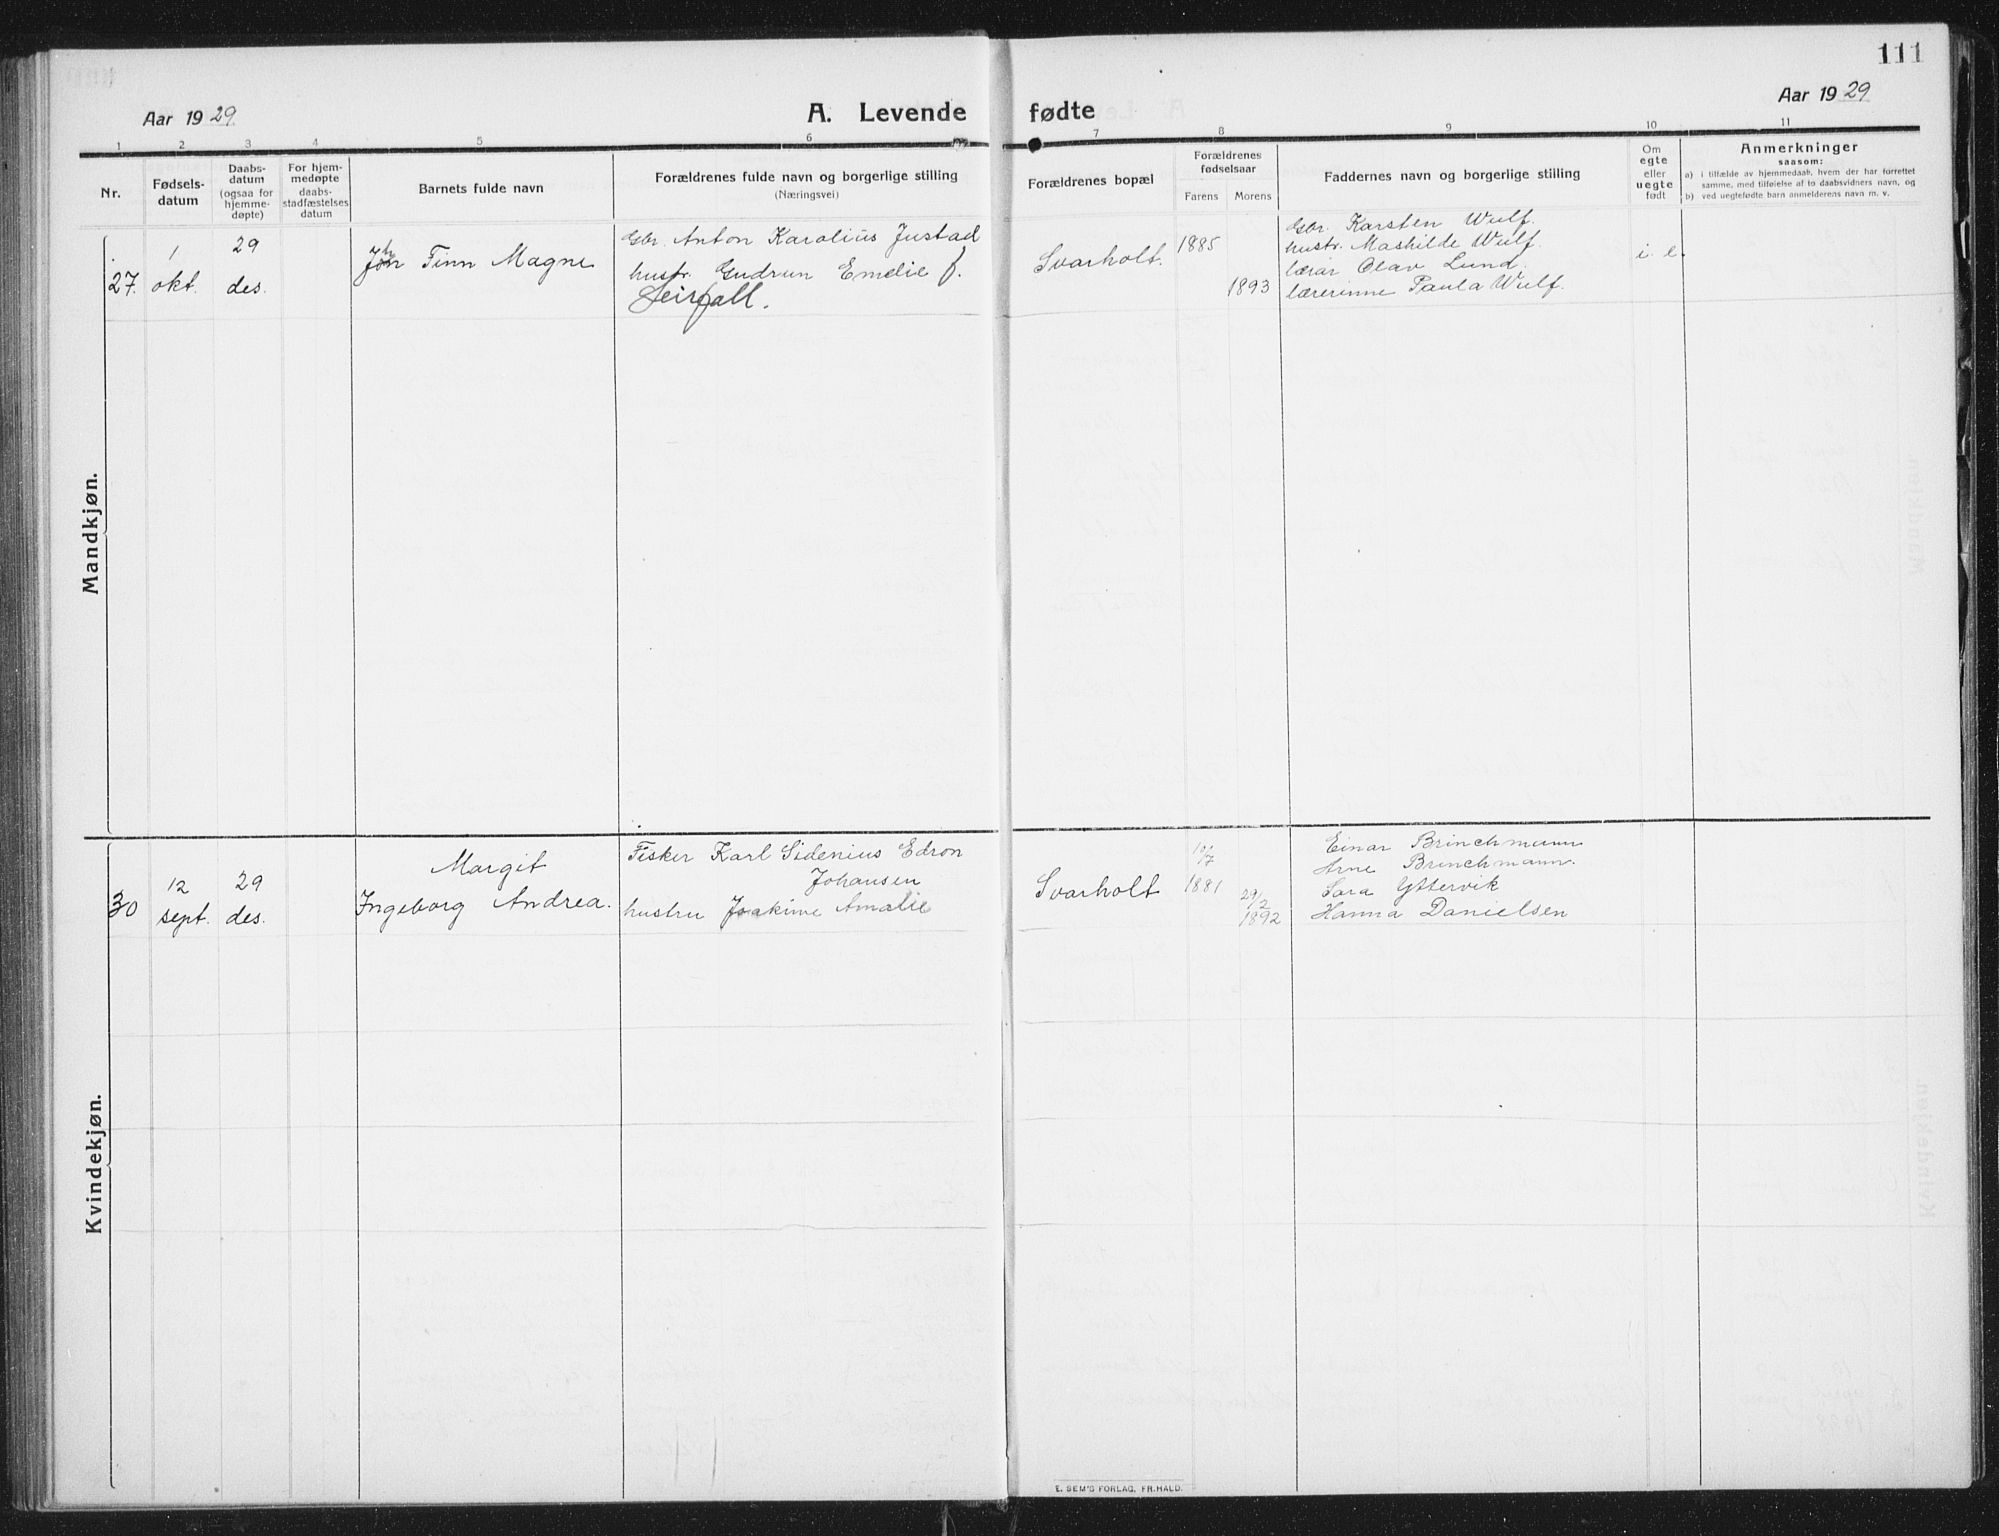 111
Aar 1929
A. Levende fødte
Aar 1929
1 2 3 4 5 6 7 8 9 10 11
Nr.
Fødsels-
datum
Daabs-
datum
(ogsaa for
hjemme-
døpte)
For hjem-
medøpte
daabs-
stadfæstelses
datum
Barnets fulde navn
Forældrenes fulde navn og borgerlige stilling
(Næringsvei)
Forældrenes bopæl
Forældrenes
fødselsaar
Farens Morens
Faddernes navn og borgerlige stilling
Om
egte
eller
uegte
født
Anmerkninger
saasom:
a) i tilfælde av hjemmedaab, hvem der har forrettet
samme, med tilføielse av to daabsvidners navn, og
b) ved uegtefødte barn anmelderens navn m. v.
Mandkjøn.
27.
1
okt.
29
des.
John Finn Magne
Gbr. Anton Karolius Justad
hustr. Gudrun Emelie f.
Svarholt.
1885
1893
Gbr. Karsten Wulf.
hustr. Mathilde Wulf.
lærar Olav Lund.
lærerinne Paula Wulf.
i. e.
Kvindekjøn.
30
12
sept.
29
des.
Margit
Ingeborg Andrea.
Fisker Karl Sidenius Edron
Johansen
hustru Joakime Amalie
Svarholt
10/7
1881
29/2
1892
Einar Brinchmann
Arne Brinchmann.
Sara Yttervik
Hanna Danielsen
E. SEM'S FORLAG, FR.HALD.